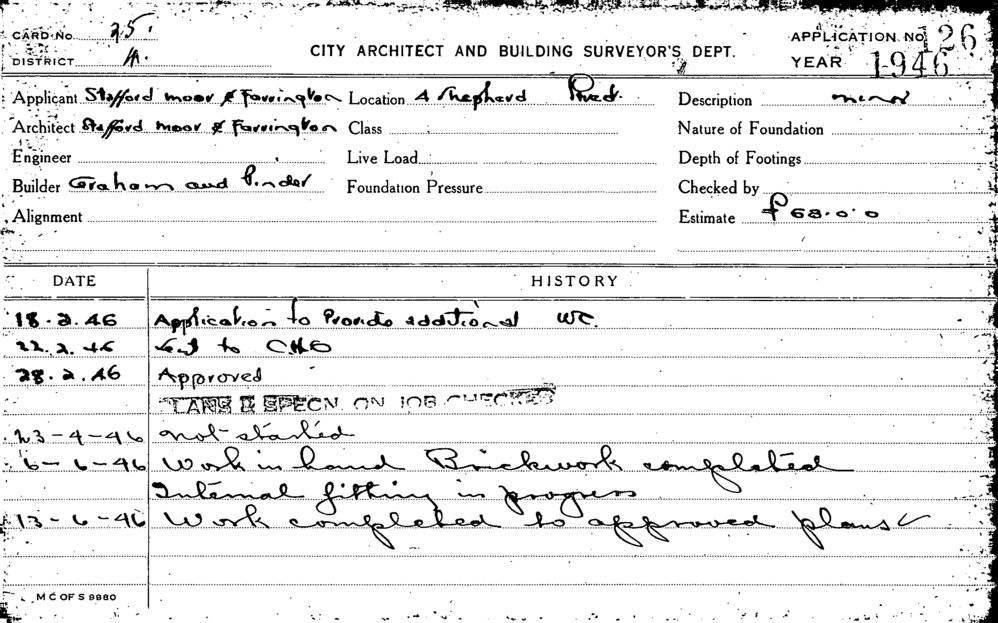 CARD No. 25.
DISTRICT A.
CITY ARCHITECT AND BUILDING SURVEYOR'S DEPT.
APPLICATION No. 126
YEAR 1946
Applicant Stafford moor & Farrington Location A Shepherd
Description minor
Architect Stafford moor & Farrington Class
Nature of Foundation
Engineer Live Load
Depth of Footings
Builder Graham and Pinder Foundation Pressure
Checked by
Alignment
Estimate £68.0.0
DATE HISTORY
18.2.46 Application to Provide additional WC.
22.2.46 Sent to CHO
28.2.46 Approved
PLANS & SPECN ON JOB CHECKED
23-4-46 not started
6-6-46 Work in hand Brickwork completed
Internal fitting in progress
13-6-46 Work completed to approved plans
M C OF S 9980